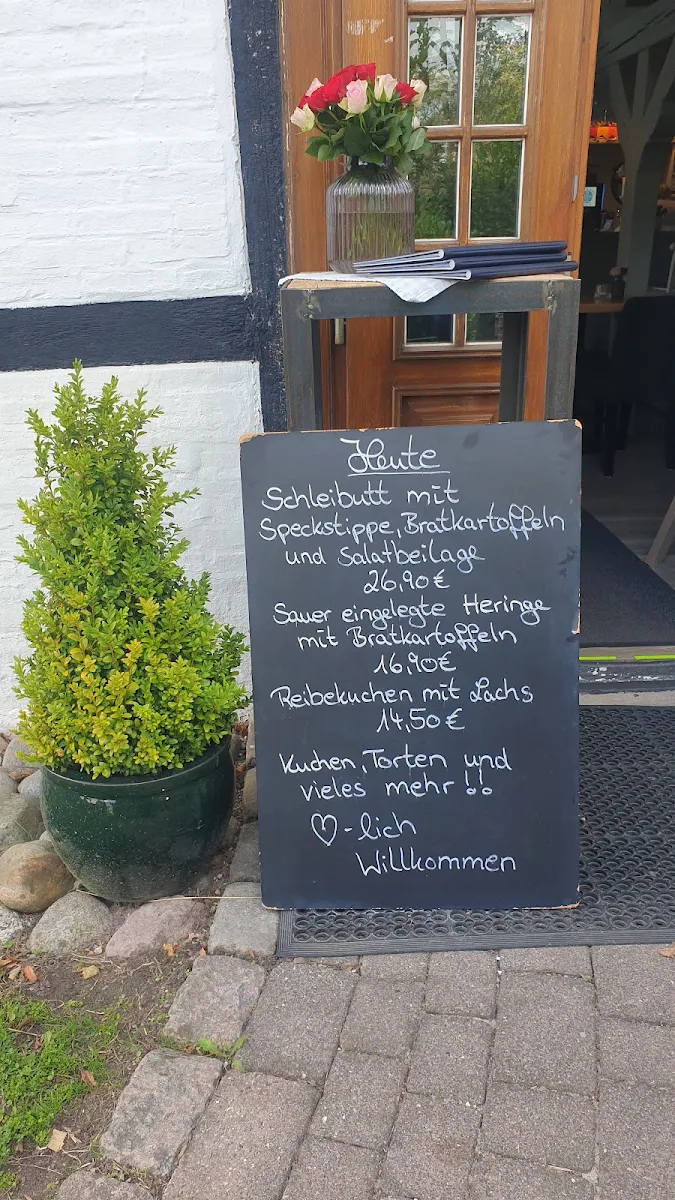 Heute
Schleibutt mit
Speckstippe, Bratkartoffeln
und Salatbeilage
26,90 €
Sauer eingelegte Heringe
mit Bratkartoffeln
16,90 €
Reibekuchen mit Lachs
14,50 €
Kuchen, Torten und
vieles mehr!!
♡-lich
Willkommen